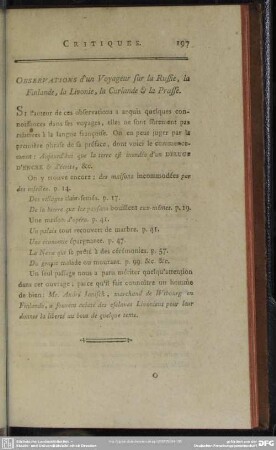 CRITIQUES. 197
OBSERVATIONS d'un Voyageur sur la Russie, la
Finlande, la Livonie, la Curlande & la Prusse.
SI l'auteur de ces observations a acquis quelques con-
noissances dans ses voyages, elles ne sont sûrement pas
relatives à la langue françoise. On en peut juger par la
première phrase de sa préface, dont voici le commence-
ment: Aujourd'hui que la terre est inondée d'un DELUGE
D'ENCRE & Livres, &c.
On y trouve encore: des maisons incommodées par
des p. 14.
Des villages clair-semés. p. 17.
De la que les paysans bouillent eux-mêmes. p. 19.
Une maison d'opéra. p. 41.
Un palais tout recouvert de marbre. p. 91.
Une économie épargnante. p. 47.
La Neva qui se prête à des cérémonies. p. 57.
Du malade ou moutarz. p. 99. &c. &c.
Un seul passage nous a paru mériter quelqu'attention
dans cet ouvrage, parce qu'il fait connoître un homme
de bien: Mr. André marchand de Wibourg en
Finlande, a souvent acheté des esclaves Livoniens pour leur
donner la liberté au bout de quelque tems.
O